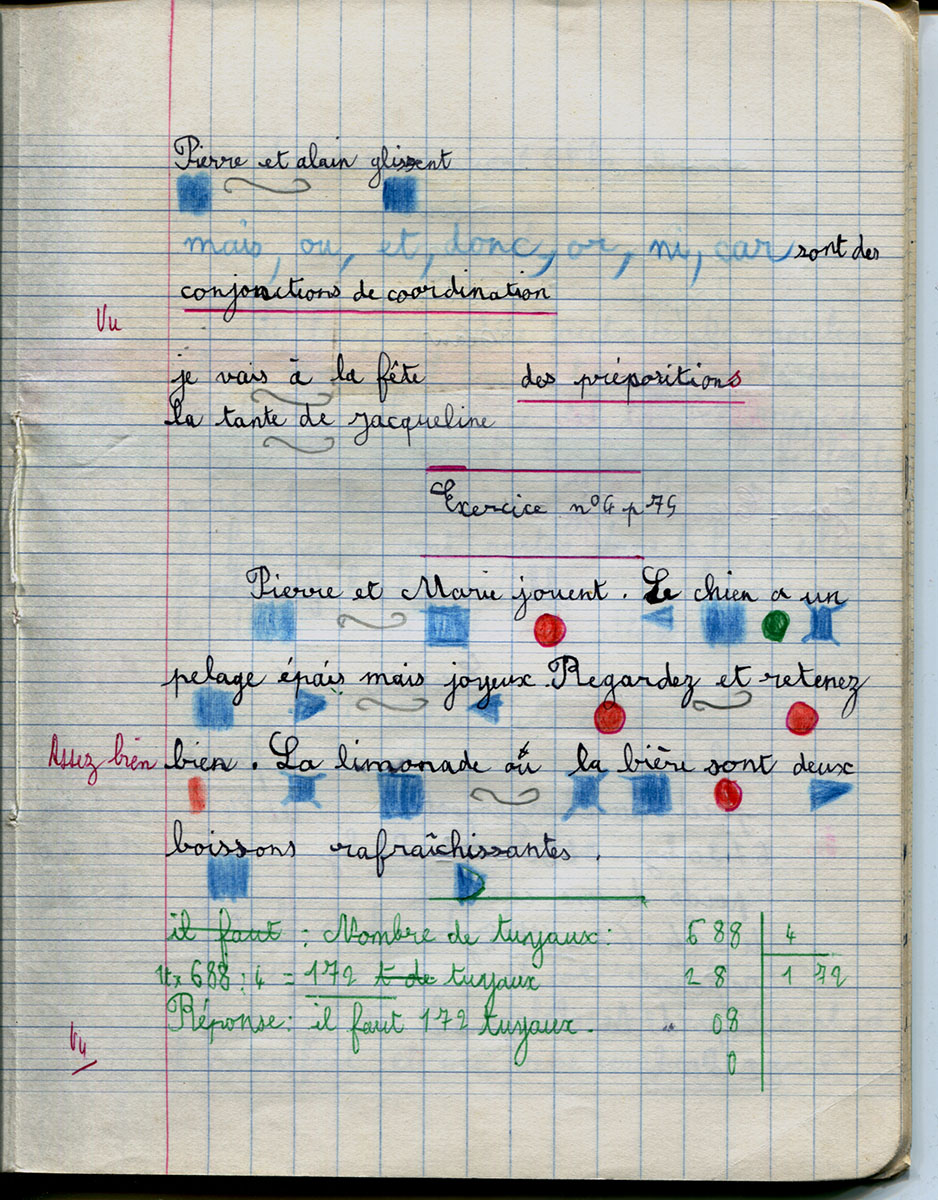 Pierre et alain glissent
mais, ou, et, donc, or, ni, car sont des
conjonctions de coordination
Vu
je vais à la fête des prépositions
la tante de jacqueline
Exercice n°4 p 75
Pierre et Marie jouent. Le chien a un
pelage épais mais joyeux. Regardez et retenez
Assez bien
bien. La limonade ou la bière sont deux
boissons rafraîchissantes.
il faut : Nombre de tuyaux: 688 4
1t x 688 : 4 = 172 t de tuyaux 28 172
Réponse: il faut 172 tuyaux. 08
Vu
0